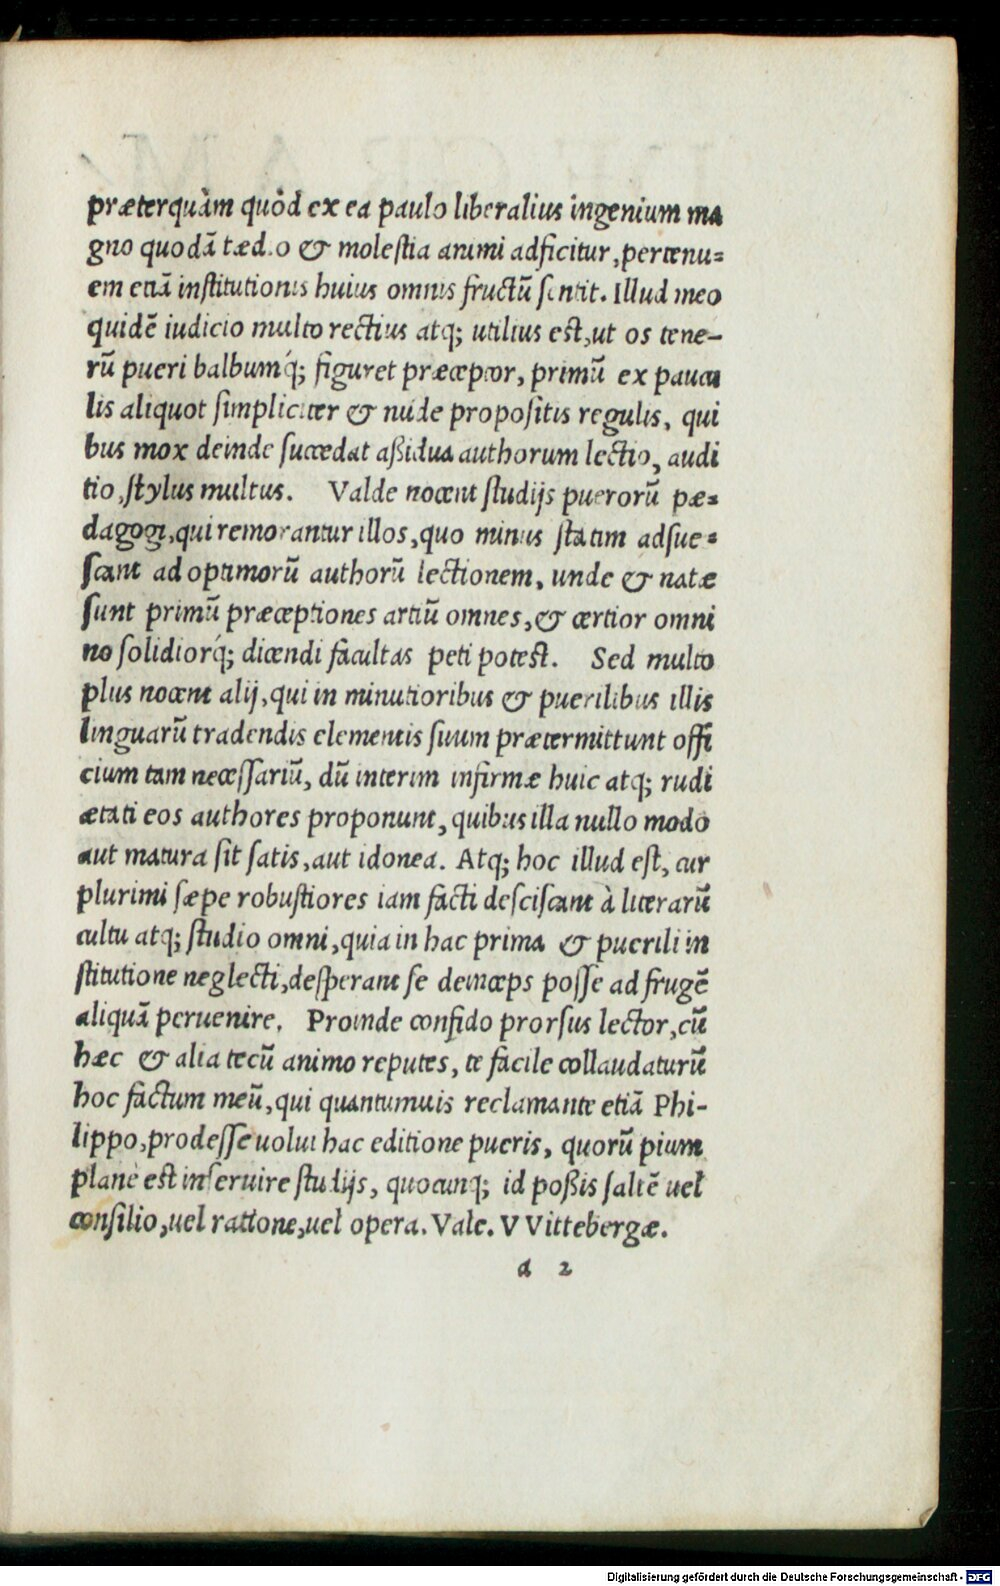 præterquàm quòd ex ea paulo liberalius ingenium ma
gno quodā tædio & molestia animi adficitur, pertenu=
em etiā institutionis huius omnis fructū sentit. Illud meo
quidē iudicio multo rectius atq; utilius est, ut os tene-
rū pueri balbumq́; figuret præceptor, primū ex paucu
lis aliquot simpliciter & nude propositis regulis, qui
bus mox deinde succedat aßidua authorum lectio, audi
tio, stylus multus. Valde nocent studijs puerorū pæ=
dagogi, qui remorantur illos, quo minus statim adsue=
scant ad optimorū authorū lectionem, unde & natæ
sunt primū præceptiones artiū omnes, & certior omni
no solidiorq́; dicendi facultas peti potest. Sed multo
plus nocent alij, qui in minutioribus & puerilibus illis
linguarū tradendis elementis suum prætermittunt offi
cium tam necessariū, dū interim infirmæ huic atq; rudi
ætati eos authores proponunt, quibus illa nullo modo
aut matura sit satis, aut idonea. Atq; hoc illud est, cur
plurimi sæpe robustiores iam facti desciscant à literarū
cultu atq; studio omni, quia in hac prima & puerili in
stitutione neglecti, desperant se deinceps posse ad frugē
aliquā peruenire. Proinde confido prorsus lector, cū
hæc & alia tecū animo reputes, te facile collaudaturū
hoc factum meū, qui quantumuis reclamante etiā Phi-
lippo, prodesse uolui hac editione pueris, quorū pium
planè est inseruire studijs, quocunq; id poßis saltē uel
consilio, uel ratione, uel opera. Vale. VVittebergæ.
a 2
Digitalisierung gefördert durch die Deutsche Forschungsgemeinschaft - DFG